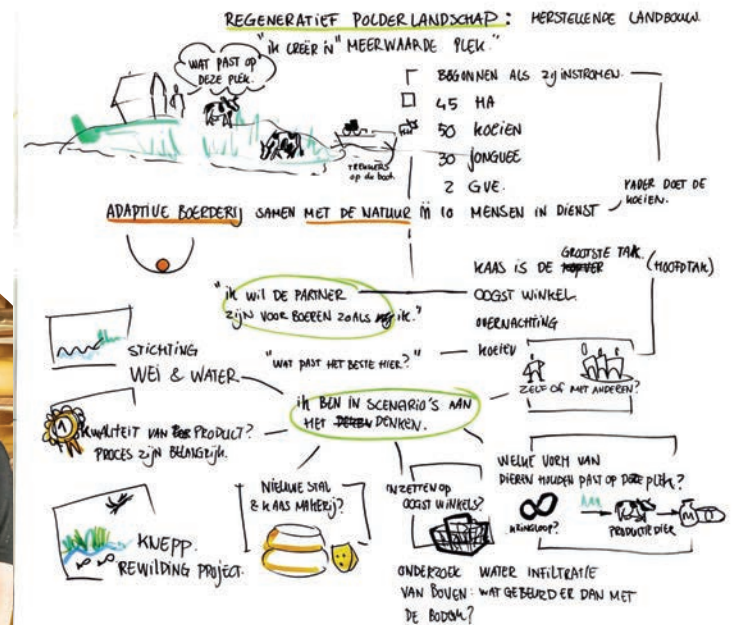 REGENERATIEF POLDERLANDSCHAP: HERSTELLENDE LANDBOUW.
"ik CREËR IN" MEERWAARDE PLEK."
WAT PAST OP
DEZE PLEK.
TREKKERS
op de boot.
BEGONNEN ALS ZIJINSTROMEN.
45 HA
50 KOEIEN
30 JONGVEE
2 GVE.
10 MENSEN IN DIENST
VADER DOET DE
KOEIEN.
ADAPTIVE BOERDERIJ SAMEN MET DE NATUUR
KAAS IS DE GROOTSTE TAK. (HOOFDTAK)
OOGST WINKEL.
OVERNACHTING
KOEIEN
ZELF OF MET ANDEREN?
"ik WIL DE PARTNER
ZIJN VOOR BOEREN ZOALS ik."
"WAT PAST HET BESTE HIER?"
STICHTING
WEI & WATER
ik BEN IN SCENARIO'S AAN
HET DENKEN.
1
KWALITEIT VAN PRODUCT?
PROCES ZIJN BELANGRIJK.
KNEPP.
REWILDING PROJECT.
NIEUWE STAL
& KAAS MAKERIJ?
INZETTEN OP
OOGST WINKELS?
WELKE VORM VAN
DIEREN HOUDEN PAST OP DEZE PLEK?
KRINGLOOP?
PRODUCTIEDIER
M
ONDERZOEK WATER INFILTRATIE
VAN BOVEN: WAT GEBEURD ER DAN MET
DE BODEM?